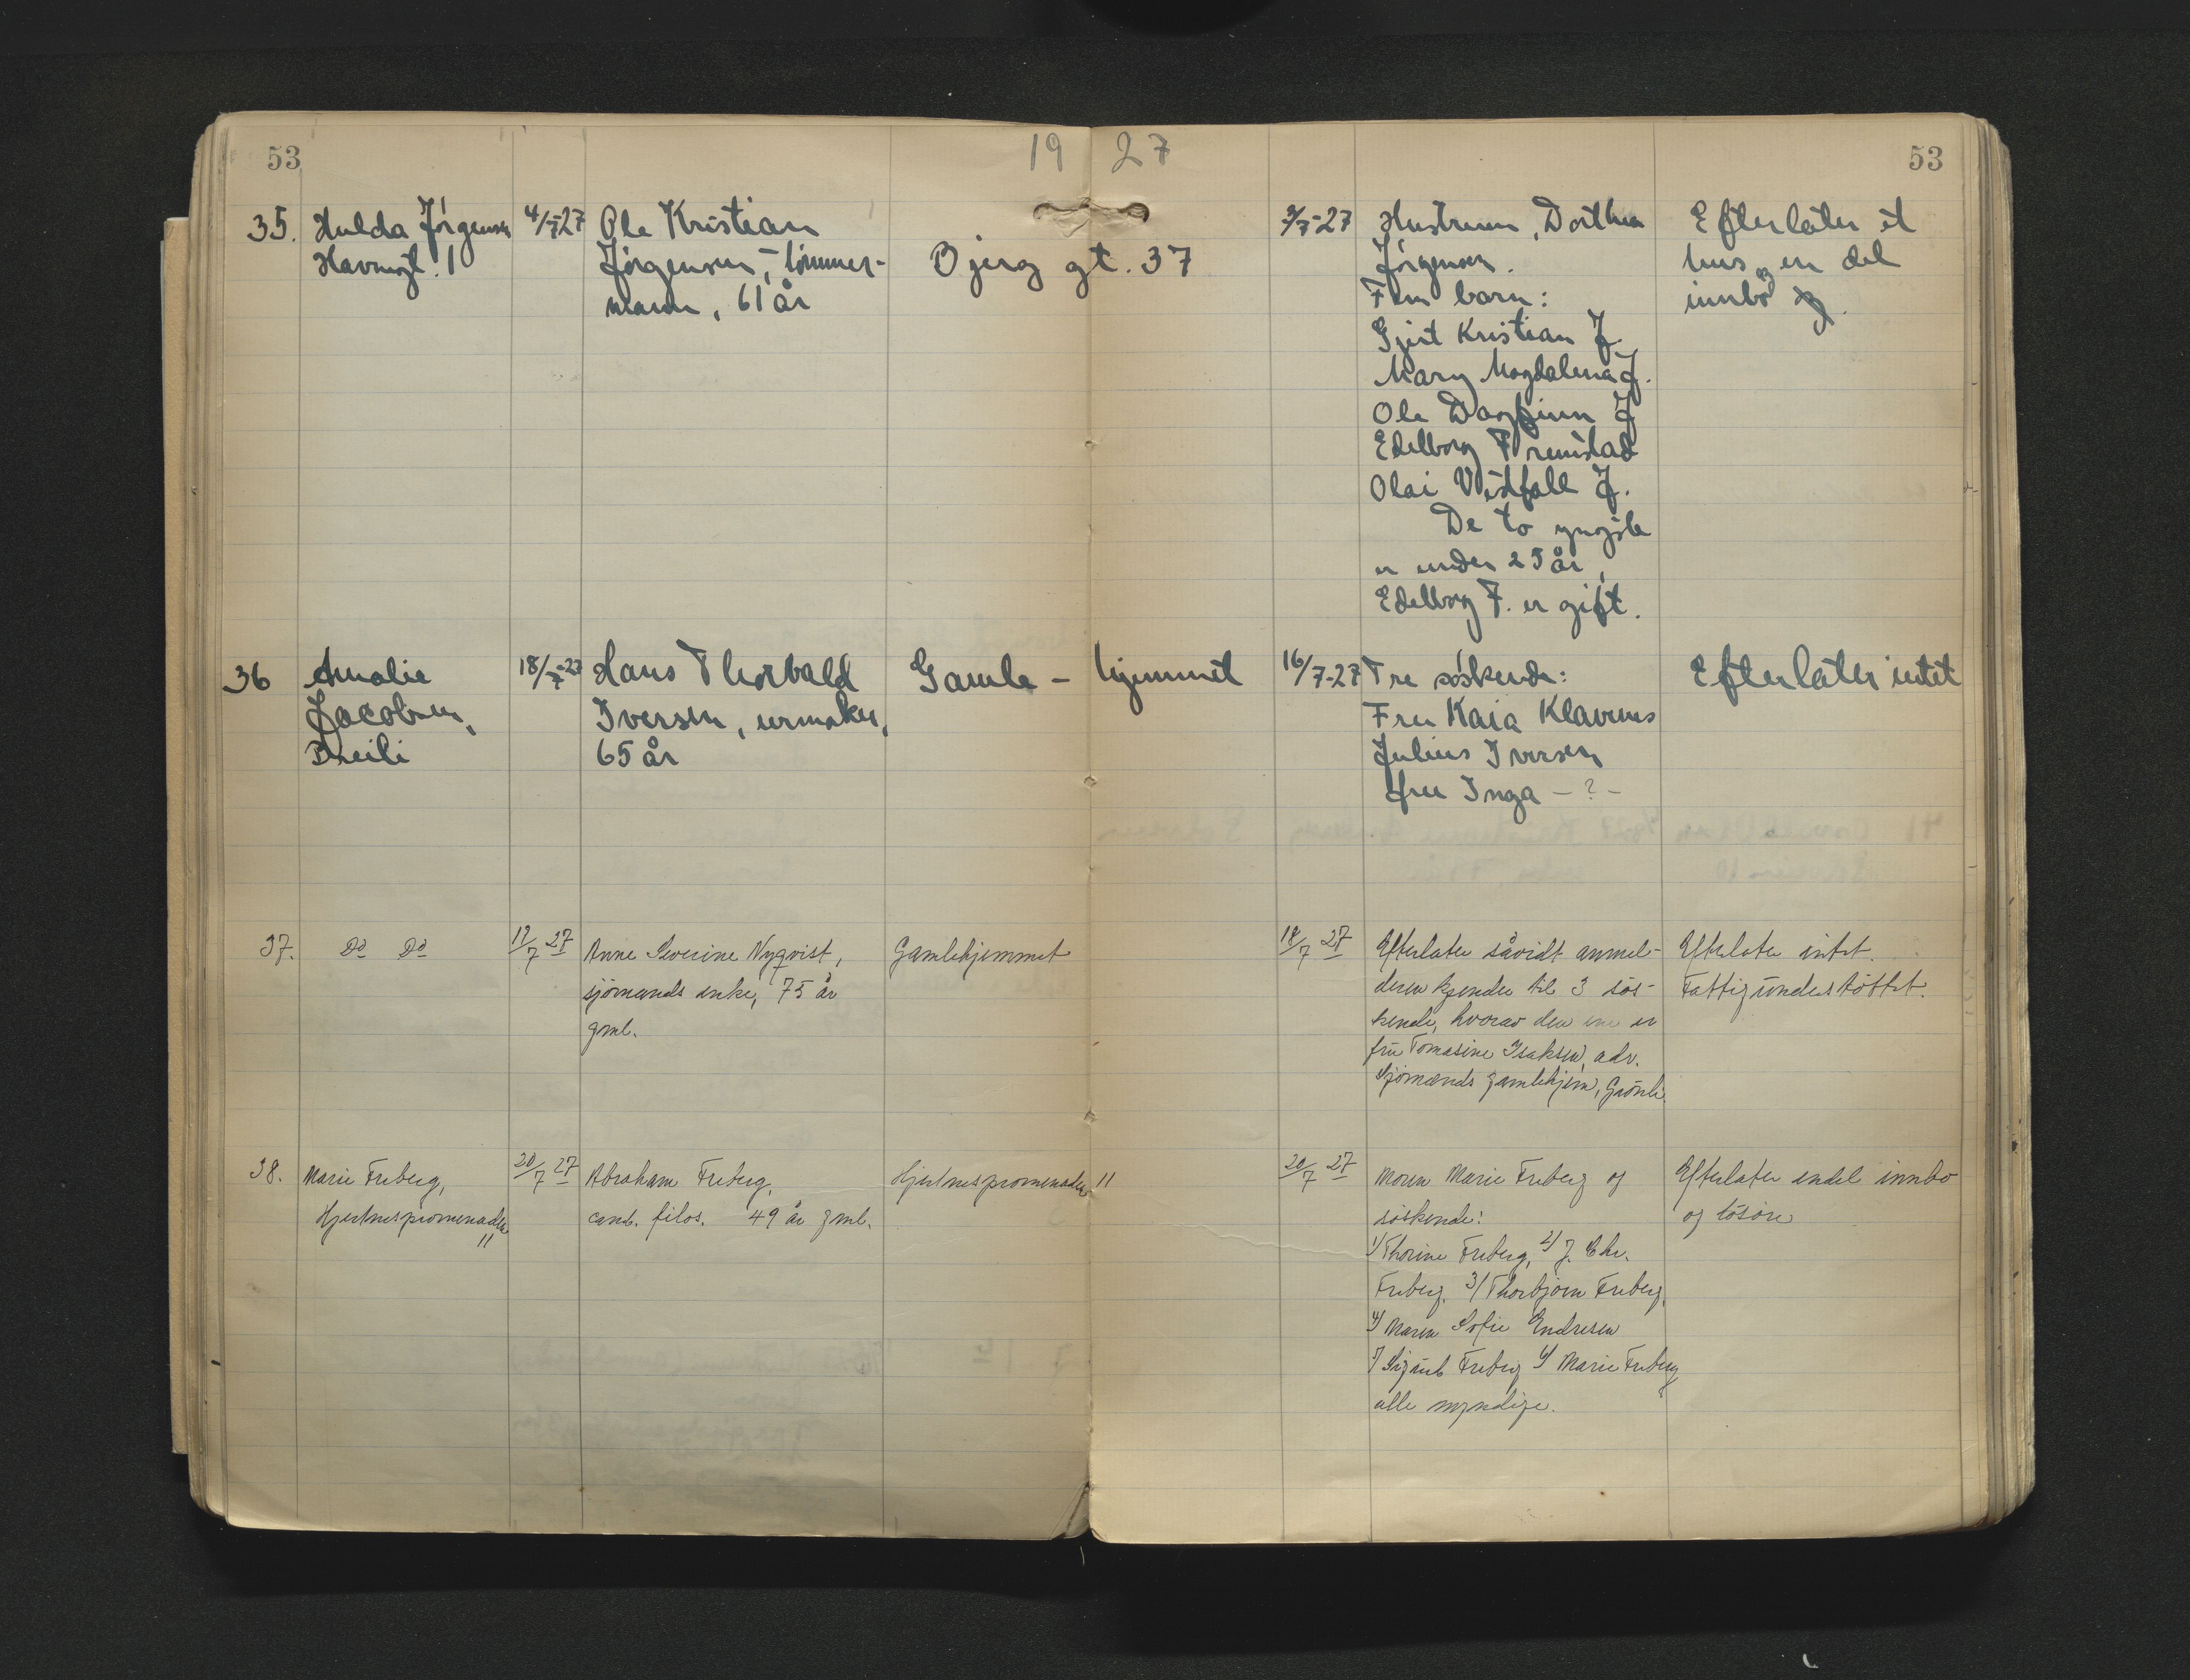 53
19 27
53
35. Hulda Jörgensen 4/7-27 Ole Kristian 3/7-27 Hustruen, Dorthea Efterlater et
Havnegt. 1 Jörgensen, tömmer- Bjerg gt. 37 Jörgensen. hus og en del
mann, 61 år Fem barn: innbo
Gjert Kristian J.
Mary Magdalena J.
Ole Dagfinn J
Edelborg Fremstad
Olai Vestfall J.
De to yngste
er under 25 år,
Edelborg F. er gift.
36 Amalie 18/7-27 Hans Thorvald Gamle- hjemmet 16/7-27 Tre söskende: Efterlater intet
Jacobsen, Iversen, urmaker, Fru Kaia Klavenes
Breili 65 år Julius Iversen
fru Inga -?-
37. Do Do 7 27 Anne Severine Nyqvist, Gamlehjemmet 18/7 27 Efterlater såvidt anmel- Efterlater intet.
sjömands enke, 75 år deren kjender til 3 sös- Fattigunderstöttet.
gml. kende, hvorav den ene er
fru Tomasine Isaksen, adr.
Sjömands gamlehjem, Grönli.
38. Marie Friberg, 20/7 27 Abraham Friberg, Hjertnespromenaden 11 20/7 27 Moren Marie Friberg og Efterlater endel innbo
Hjertnespromenaden cand. filos. 49 år gml. söskende: og lösöre
11
1/ Thorine Friberg, 2/ J. Chr.
Friberg, 3/ Thorbjörn Friberg,
4/ Maren Sofie Endresen
Friberg Marie Friberg
alle myndige.